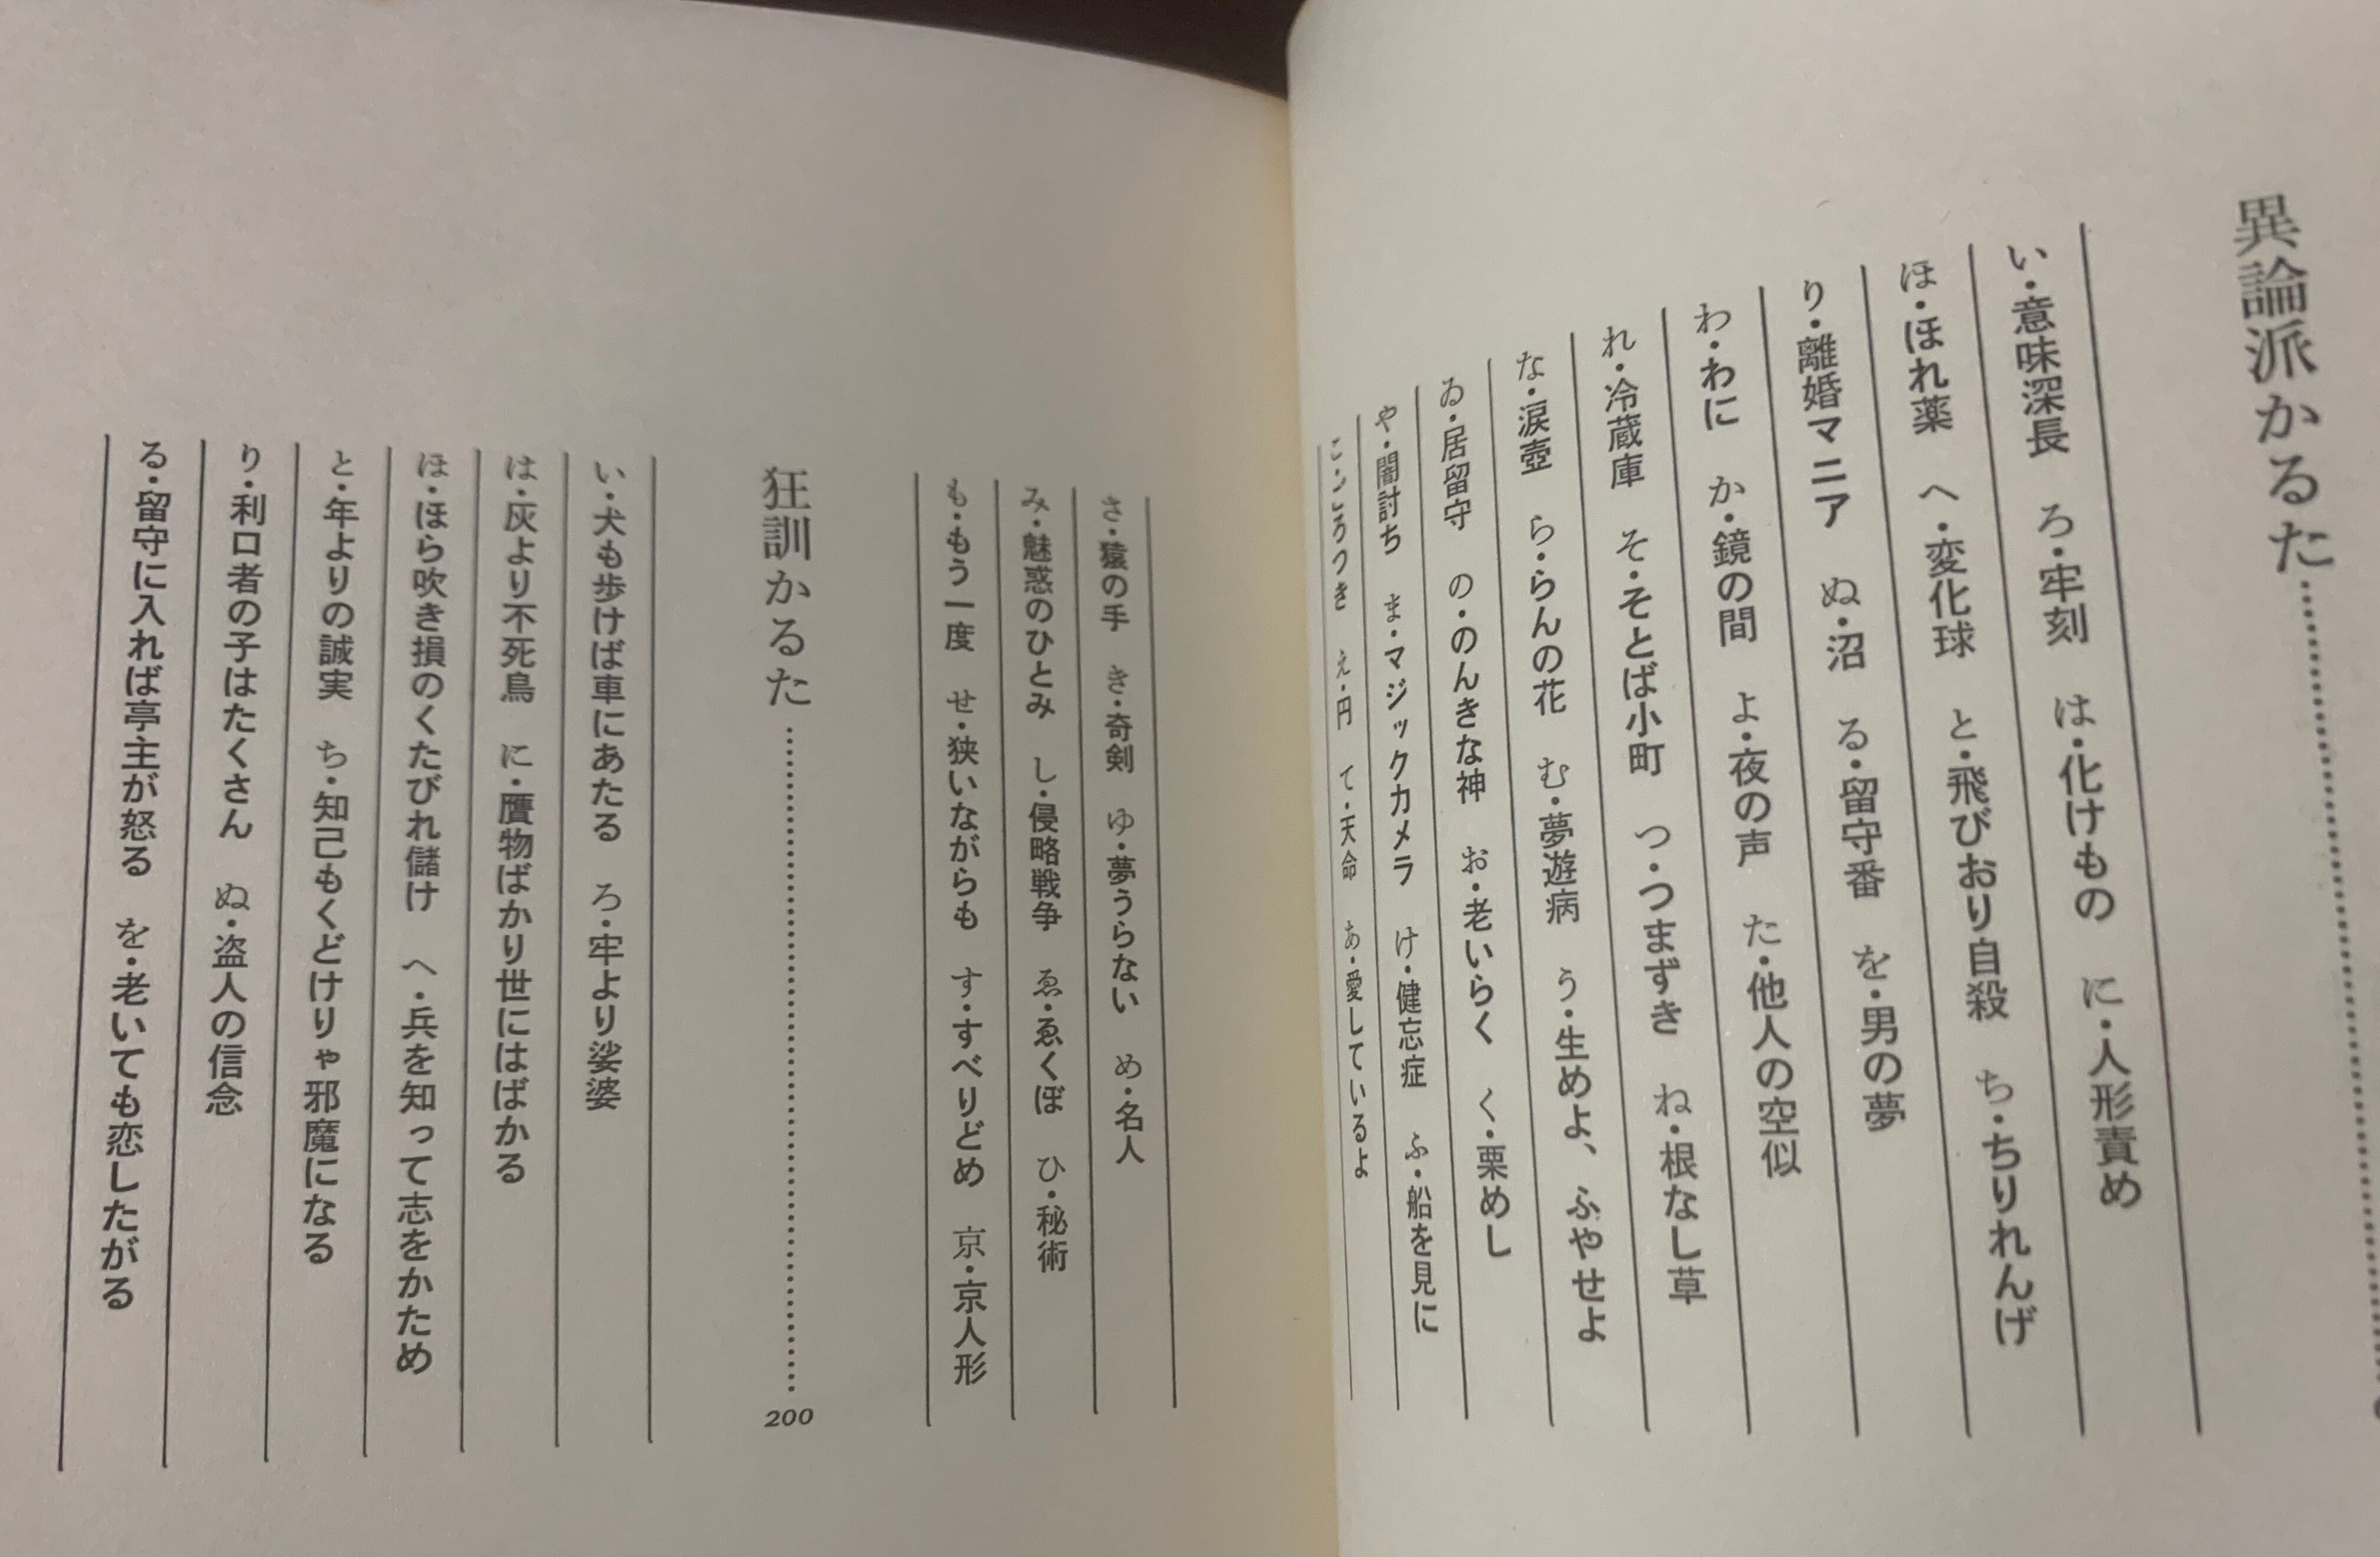 異論派かるた
い・意味深長　ろ・牢刻　は・化けもの　に・人形責め
ほ・ほれ薬　へ・変化球　と・飛びおり自殺　ち・ちりれんげ
り・離婚マニア　ぬ・沼　る・留守番　を・男の夢
わ・わに　か・鏡の間　よ・夜の声　た・他人の空似
れ・冷蔵庫　そ・そとば小町　つ・つまずき　ね・根なし草
な・涙壺　ら・らんの花　む・夢遊病　う・生めよ、ふやせよ
ゐ・居留守　の・のんきな神　お・老いらく　く・栗めし
や・闇討ち　ま・マジックカメラ　け・健忘症　ふ・船を見に
え・円　て・天命　あ・愛しているよ
さ・猿の手　き・奇剣　ゆ・夢うらない　め・名人
み・魅惑のひとみ　し・侵略戦争　ゑ・ゑくぼ　ひ・秘術
も・もう一度　せ・狭いながらも　す・すべりどめ　京・京人形
狂訓かるた……………200
い・犬も歩けば車にあたる　ろ・牢より娑婆
は・灰より不死鳥　に・贋物ばかり世にはばかる
ほ・ほら吹き損のくたびれ儲け　へ・兵を知って志をかため
と・年よりの誠実　ち・知己もくどけりゃ邪魔になる
り・利口者の子はたくさん　ぬ・盗人の信念
る・留守に入れば亭主が怒る　を・老いても恋したがる